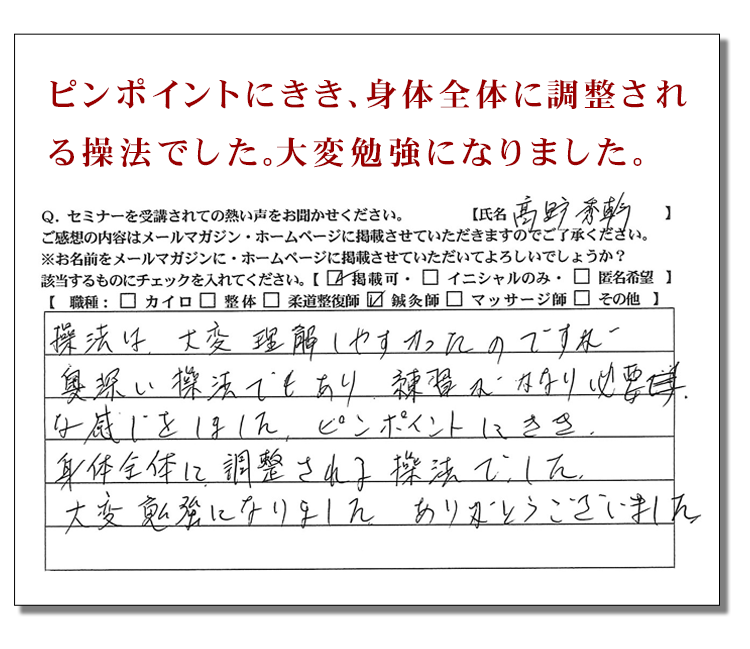 ピンポイントにきき、身体全体に調整され
る操法でした。大変勉強になりました。
Q. セミナーを受講されての熱い声をお聞かせください。 【氏名 高野 秀幹 】
ご感想の内容はメールマガジン・ホームページに掲載させていただきますのでご了承ください。
※お名前をメールマガジンに・ホームページに掲載させていただいてよろしいでしょうか？
該当するものにチェックを入れてください。【 ☑ 掲載可・ □ イニシャルのみ・ □ 匿名希望 】
【 職種： □ カイロ □ 整体 □ 柔道整復師 ☑ 鍼灸師 □ マッサージ師 □ その他 】
操法は、大変理解しやすかったのですが
奥深い操法でもあり、練習がかなり必要
な感じをしました。ピンポイントにきき、
身体全体に調整される操法でした。
大変勉強になりました。ありがとうございました